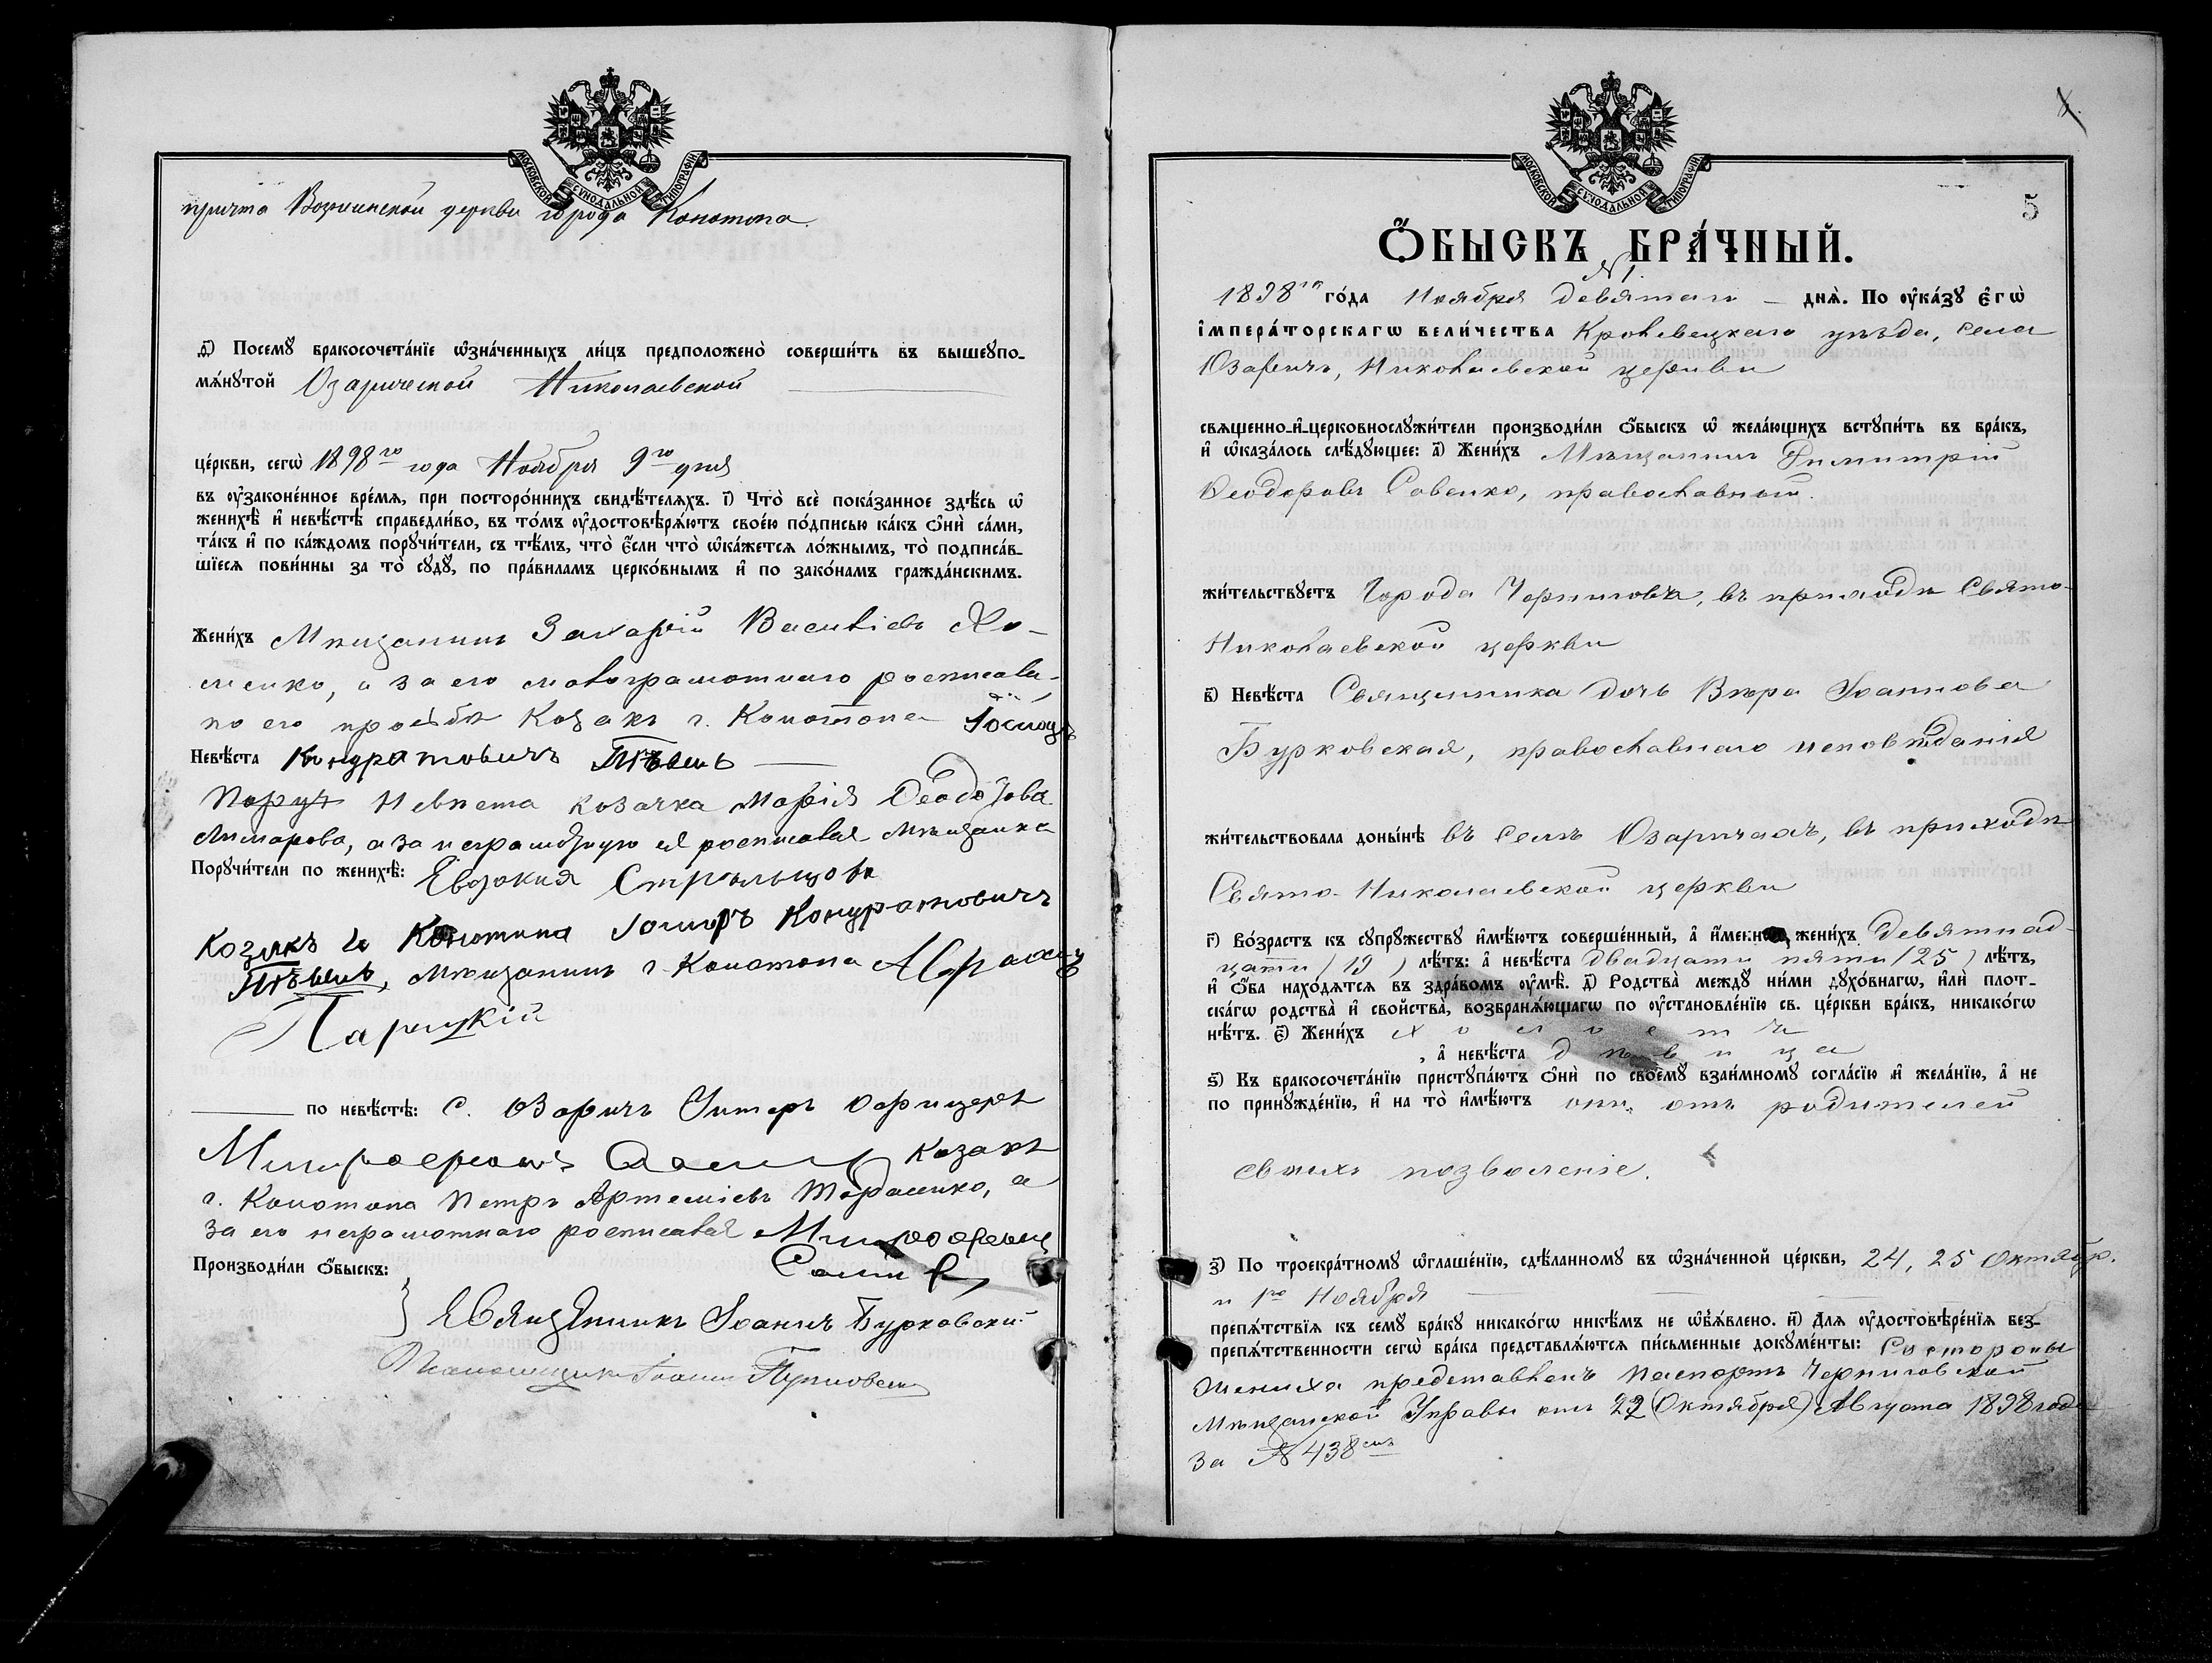 МОСКОВСКОЙ СѴНОДАЛЬНОЙ ТИПОГРАФІИ
причта Вознесенской церкви города Конотопа.
д҃і) Посемꙋ бракосочета́нїе ѡ҆зна́ченныхъ ли́цъ предположено̀ соверши́ть въ вышеꙋпо-
мѧ́нꙋтой Озарической Николаевской
це́ркви, сегѡ̀ 1898го года Ноября 9го дня
въ ᲂу҆законе́нное вре́мѧ, при посторо́ннихъ свидѣ́телѧхъ. і҃) Что̀ всѐ пока́занное здѣ́сь ѡ҆
женихѣ̀ и҆ невѣ́стѣ справедли́во, въ то́мъ ᲂу҆достовѣрѧ́ютъ свое́ю по́дписью ка́къ ѻ҆нѝ са́ми,
та́къ и҆ по ка́ждомъ порꙋчи́тели, съ тѣ́мъ, что̀ є҆́сли что̀ ѡ҆ка́жетсѧ ло́жнымъ, то̀ подписа́в-
шїесѧ пови́нны за то̀ сꙋдꙋ̀, по пра́виламъ церко́внымъ и҆ по зако́намъ гражда́нскимъ.
Жени́хъ Мѣщанинъ Захарій Васильевъ Хо-
менко, а за его малограмотнаго росписался
по его просьбѣ Козакъ г. Конотопа
Невѣ́ста Кондратовичъ
Поруч Невѣста козачка Марія Ѳеодотова
Лимарова, а за неграмотную ея росписался Мѣщанка
Порꙋчи́тели по женихѣ̀: Евдокия Стрѣльцова
Козакъ г. Конотопа Кондратовичъ
Мѣщанинъ г. Конотопа Абрамъ
по невѣ́стѣ: с. Озаричъ Унтеръ Офицеръ
Митрофанъ Козакъ
г. Конотопа Петръ Артеміевъ Тарасенко, а
за его неграмотнаго росписался Митрофанъ
Производи́ли ѻ҆́быскъ:
Священникъ Іоаннъ Бурковскій
Псаломщикъ Іоаннъ
МОСКОВСКОЙ СѴНОДАЛЬНОЙ ТИПОГРАФІИ
5
Ѻ҆́БЫСКЪ БРА́ЧНЫЙ.
№ 1.
1898го го́да Ноября девятаго днѧ̀. По ᲂу҆ка́зꙋ є҆гѡ̀
і҆мпера́торскагѡ вели́чества Кролевецкаго уѣзда, села
Озаричъ, Николаевской церкви
свѧщенно-и҆-церковнослꙋжи́тели производи́ли ѻ҆́быскъ ѡ҆ жела́ющихъ встꙋпи́ть въ бра́къ,
и҆ ѡ҆каза́лось слѣ́дꙋющее: а҃) Жени́хъ Мѣщанинъ Димитрій
Ѳеодоровъ Савенко, православный.
жи́тельствꙋетъ Города Чернигова, въ приходѣ Свято-
Николаевской церкви
в҃) Невѣ́ста Священника дочь Вѣра Іоаннова
Бурковская, православнаго исповѣданія
жи́тельствовала доны́нѣ въ селѣ Озаричахъ, въ приходѣ
Свято-Николаевской церкви
г҃) Во́зрастъ къ сꙋпрꙋ́жествꙋ и҆мѣ́ютъ соверше́нный, а҆ и҆́менно жени́хъ девятнад-
цати (19) лѣ́тъ: а҆ невѣ́ста двадцати пяти (25) лѣ́тъ,
и҆ ѻ҆́ба нахо́дѧтсѧ въ здра́вомъ ᲂу҆мѣ̀. д҃) Родства̀ междꙋ̀ ни́ми дꙋхо́внагѡ, и҆лѝ плот-
ска́гѡ родства̀ и҆ сво́йства, возбранѧ́ющагѡ по ᲂу҆становле́нїю св. це́ркви бра́къ, никако́гѡ
нѣ́тъ. є҃) Жени́хъ холостъ
, а҆ невѣ́ста дѣвица
ѕ҃) Къ бракосочета́нїю пристꙋпа́ютъ ѻ҆нѝ по своемꙋ̀ взаи́мномꙋ согла́сїю и҆ жела́нїю, а҆ не
по принꙋжде́нїю, и҆ на то̀ и҆мѣ́ютъ они, отъ родителей
своихъ позволеніе.
з҃) По троекра́тномꙋ ѡ҆глаше́нїю, сдѣ́ланномꙋ въ ѡ҆зна́ченной це́ркви, 24, 25 Октябр.
и 1го Ноября
препѧ́тствїѧ къ семꙋ̀ бра́кꙋ никако́гѡ никѣ́мъ не ѡ҆б̾ѧ́влено. и҃) Длѧ ᲂу҆достовѣре́нїѧ без-
препѧ́тственности сегѡ̀ бра́ка представлѧ́ютсѧ пи́сьменные докꙋме́нты: Со стороны
жениха представленъ паспортъ Черниговской
Мѣщанской Управы отъ 22 (Октября) Августа 1898 года
за № 438мъ